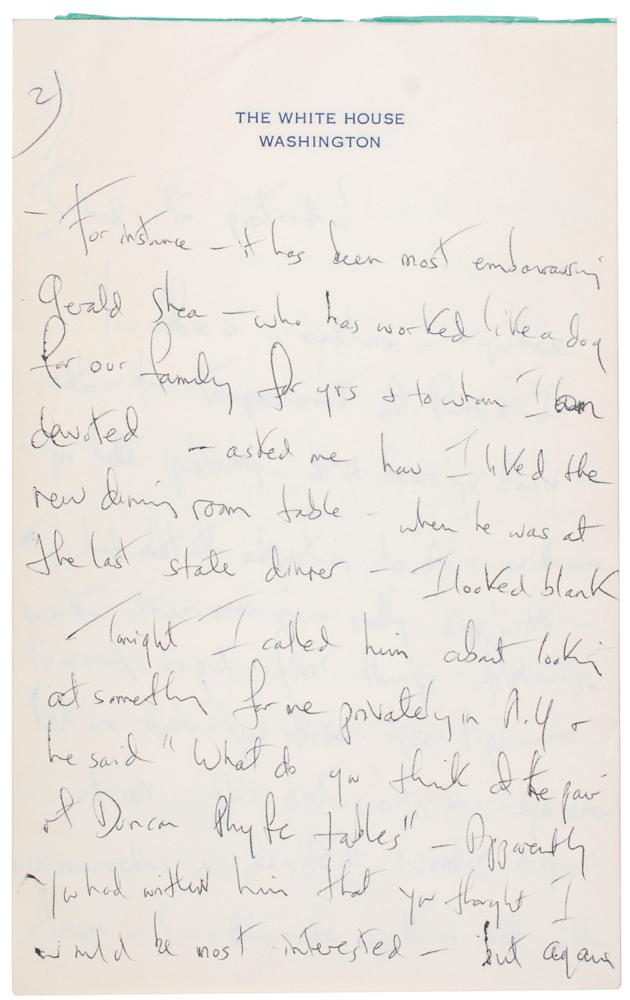 2)
THE WHITE HOUSE
WASHINGTON
- For instance - it has been most embarrassing
Gerald Shea - who has worked like a dog
for our family for yrs & to whom I am
devoted - asked me how I liked the
new dining room table - when he was at
the last state dinner - I looked blank
- Tonight I called him about looking
at something for me privately in N.Y &
he said "What do you think of the pair
of Duncan Phyfe tables" - Apparently
you had written him that you thought I
would be most interested - but again